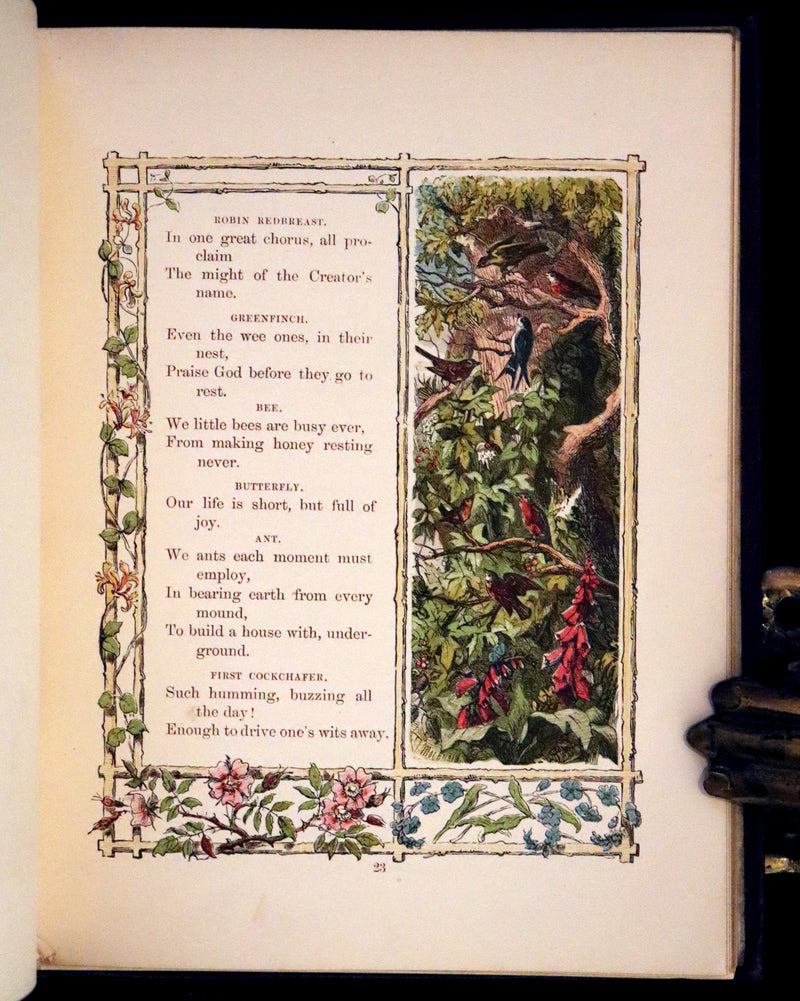 ROBIN REDBREAST.
In one great chorus, all pro-
claim
The might of the Creator's
name.
GREENFINCH.
Even the wee ones, in their
nest,
Praise God before they go to
rest.
BEE.
We little bees are busy ever,
From making honey resting
never.
BUTTERFLY.
Our life is short, but full of
joy.
ANT.
We ants each moment must
employ,
In bearing earth from every
mound,
To build a house with, under-
ground.
FIRST COCKCHAFER.
Such humming, buzzing all
the day!
Enough to drive one's wits away.
23